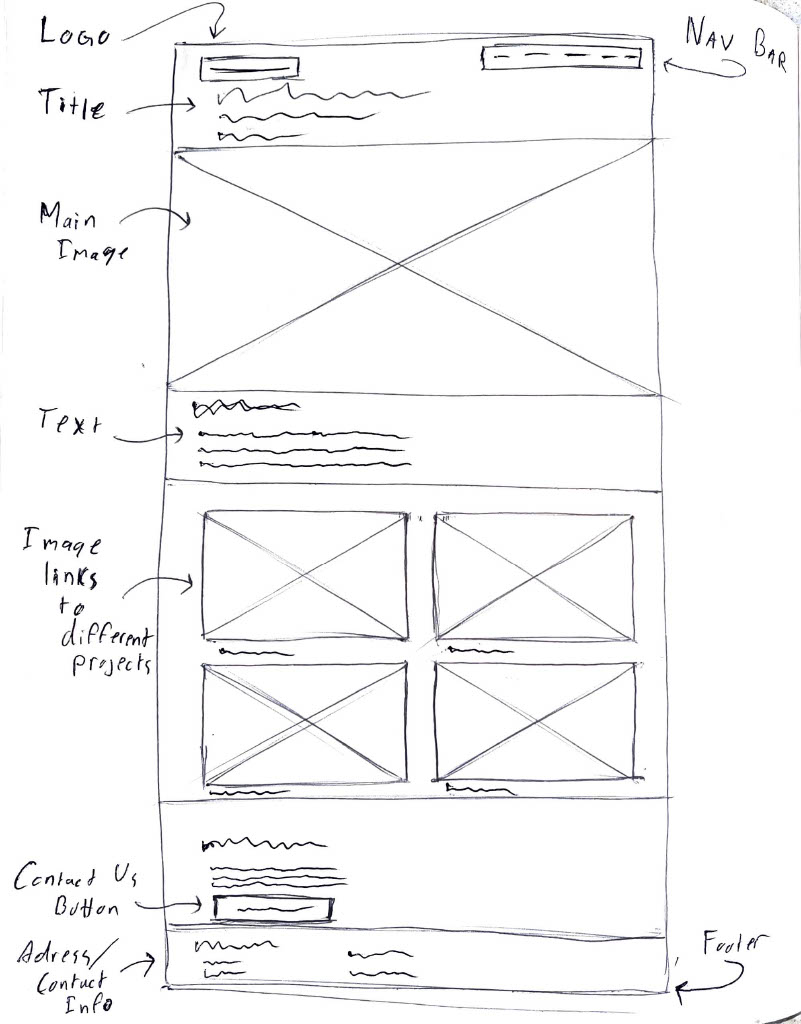 Logo
Nav Bar
Title
Main
Image
Text
Image
links
to
different
projects
Contact Us
Button
Adress/
Contact
Info
Footer